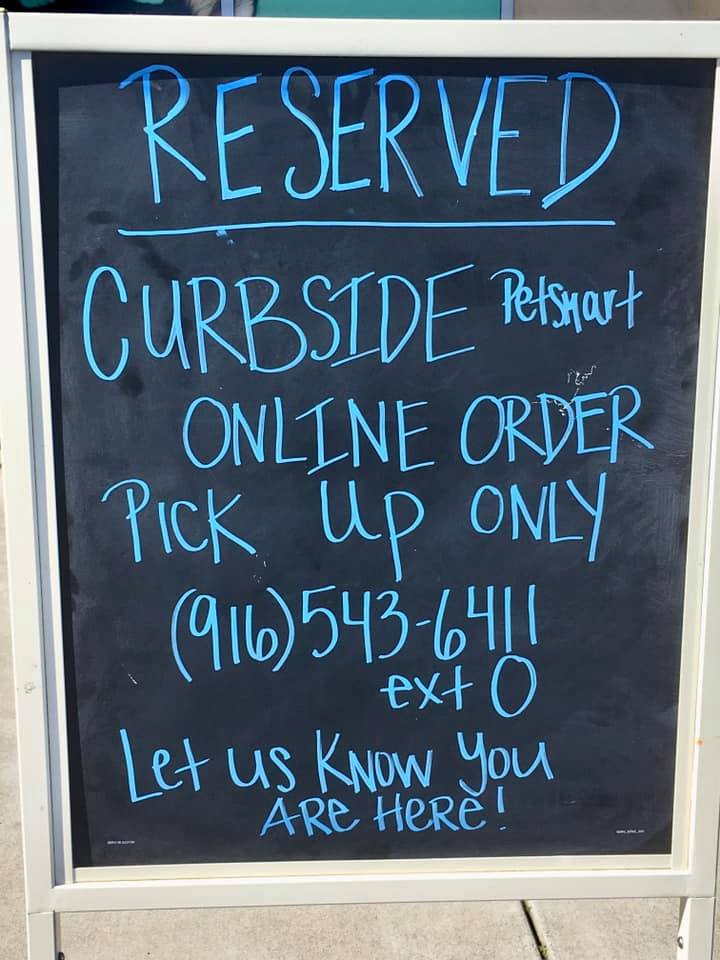 RESERVED
CURBSIDE PetSmart
ONLINE ORDER
PICK Up ONLY
(916)543-6411
ext 0
Let us KNOW You
ARe HeRe!